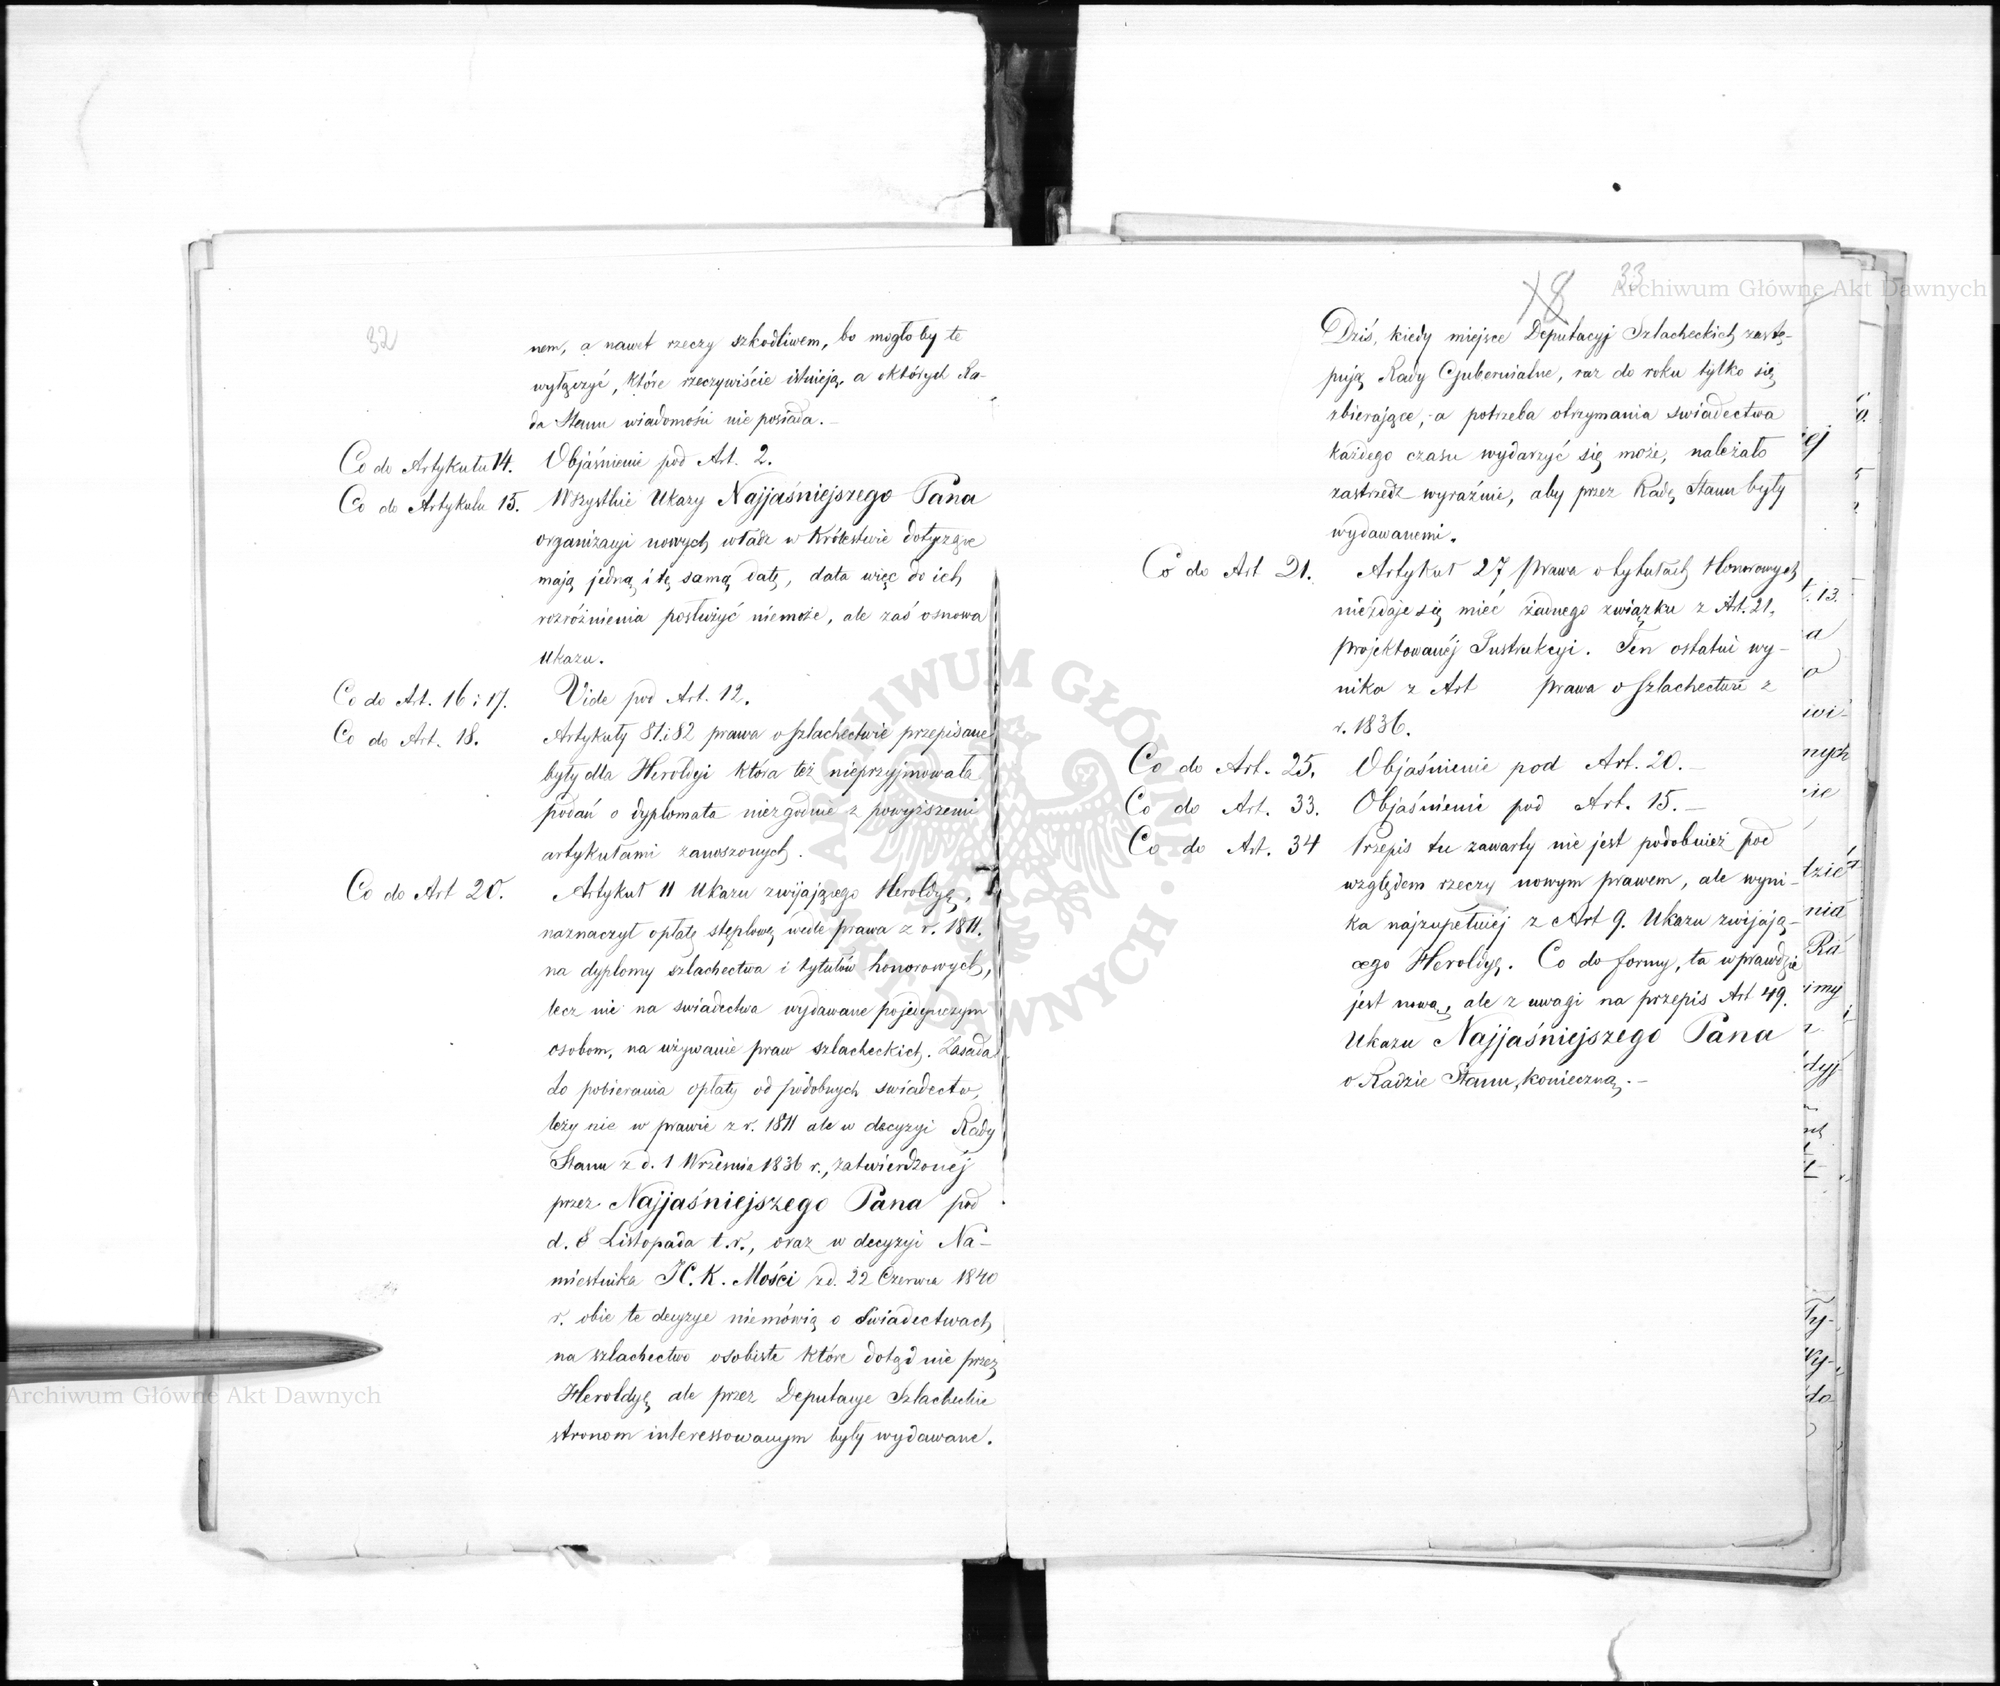 32
nem, a nawet rzeczy szkodliwem, bo mogłoby te
wyłączyć, które rzeczywiście istnieją, a o których Ra-
da Stanu wiadomości nie posiada.
Co do Artykułu 14. Objaśnienie pod Art. 2.
Co do Artykułu 15. Wszystkie Ukazy Najjaśniejszego Pana
organizacyi nowych władz w Królestwie dotyczące
mają jedną i tę samą datę, data więc do ich
rozróżnienia posłużyć niemoże, ale zaś osnowa
Ukazu.
Co do Art. 16 i 17. Vide pod Art. 12.
Co do Art. 18. Artykuły 81 i 82 prawa o szlachectwie przepisane
były dla Heroldyi która też nieprzyjmowała
podań o dyplomata niezgodnie z powyższemi
artykułami zanoszonych.
Co do Art 20. Artykuł 11 Ukazu zwijającego Heroldyę,
naznaczył opłatę stęplową wedle prawa z r. 1811.
na dyplomy szlachectwa i tytułów honorowych,
lecz nie na świadectwa wydawane pojedyńczym
osobom, na używanie praw szlacheckich. Zasada
do pobierania opłaty od podobnych świadectw,
leży nie w prawie z r. 1811 ale w decyzyi Rady
Stanu z d. 1 Września 1836 r., zatwierdzonéj
przez Najjaśniejszego Pana pod
d. 8 Listopada t. r., oraz w decyzyi Na-
miestnika J. C. K. Mości z d. 22 Czerwca 1840
r. obie te decyzye niemówią o świadectwach
na szlachectwo osobiste które dotąd nie przez
Heroldyę ale przez Deputacye Szlacheckie
stronom interessowanym były wydawane.
18 33
Dziś, kiedy miejsce Deputacyj Szlacheckich zastę-
pują Rady Gubernialne, raz do roku tylko się
zbierające, a potrzeba otrzymania świadectwa
każdego czasu wydarzyć się może, należało
zastrzedz wyraźnie, aby przez Radę Stanu były
wydawanemi.
Co do Art 21. Artykuł 27 prawa o tytułach Honorowych
niezdaje się mieć żadnego związku z Art. 21.
projektowanéj Instrukcyi. Ten ostatni wy-
nika z Art prawa o szlachectwie z
r. 1836.
Co do Art. 25. Objaśnienie pod Art. 20.
Co do Art. 33. Objaśnienie pod Art. 15.
Co do Art. 34 Przepis tu zawarty nie jest podobnież pod
względem rzeczy nowym prawem, ale wyni-
ka najzupełniéj z Art 9. Ukazu zwijają-
cego Heroldyę. Co do formy, ta wprawdzie
jest nową, ale z uwagi na przepis Art 49.
Ukazu Najjaśniejszego Pana
o Radzie Stanu, konieczną.
Archiwum Główne Akt Dawnych
Archiwum Główne Akt Dawnych
ARCHIWUM GŁÓWNE AKT DAWNYCH